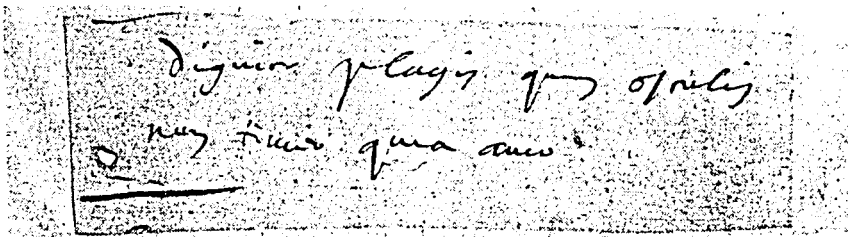 dignior plagis quam osculis
non timeo quia amo.